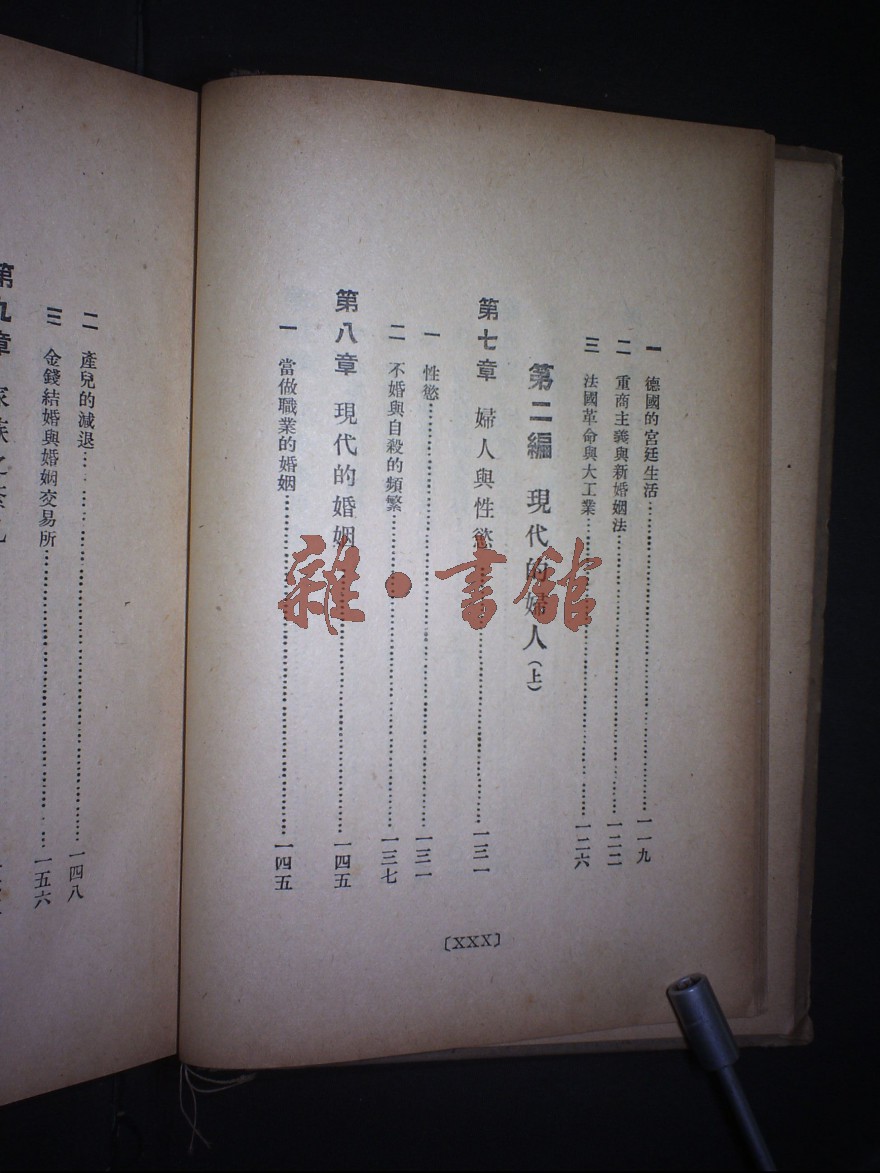 一　德國的宮廷生活……一一九
二　重商主義與新婚姻法……一二二
三　法國革命與大工業……一二六
第二編　現代的婦人（上）
第七章　婦人與性慾……一三一
一　性慾……一三一
二　不婚與自殺的頻繁……一三七
第八章　現代的婚姻……一四五
一　當做職業的婚姻……一四五
〔XXX〕
二　產兒的減退……一四八
三　金錢結婚與婚姻交易所……一五六
第九章　家族之
雜·書館